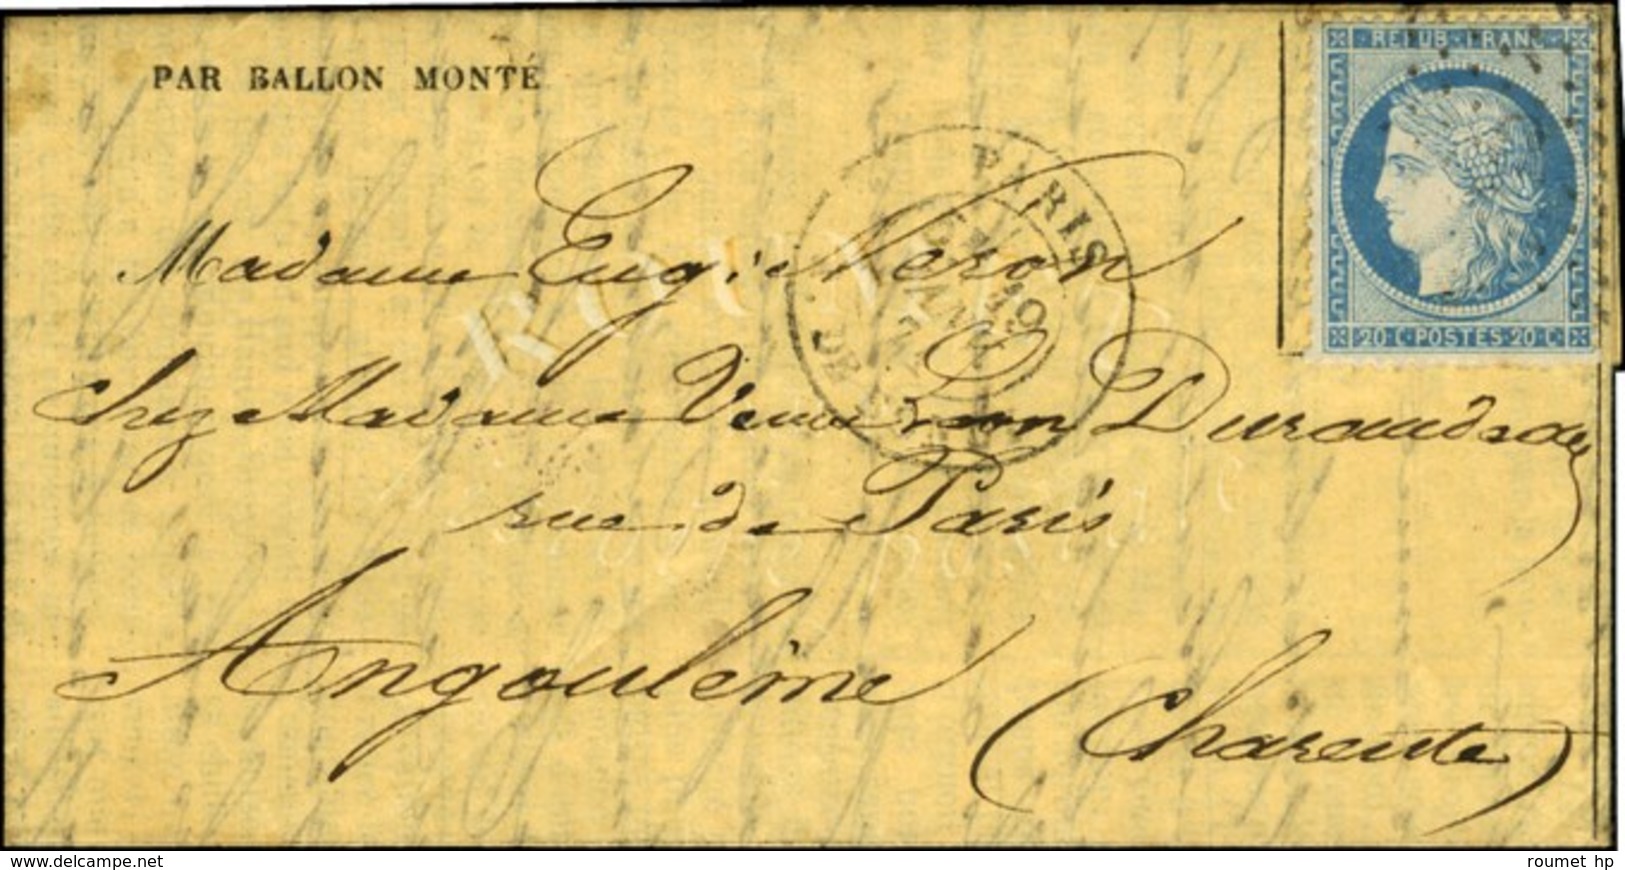 PAR BALLON MONTÉ
REPUB. FRANC.
20 C. POSTES. 20 C.
PARIS
19
JANV.
Madame Eugie Neron
Chez Madame Veuve
rue de Paris
Angoulème
(Charente)
ROUMET
www.delcampe.net
roumet hp